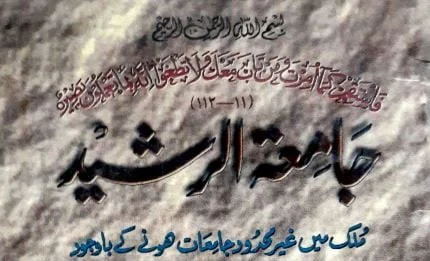 بسم الله الرحمن الرحيم
فاستقم كما أمرت ومن تاب معك ولا تطغوا إنه بما تعملون بصير
(۱۱-۱۱۲)
جامعة الرشيد
ملک میں غیر محدود جامعات ہونے کے باوجود